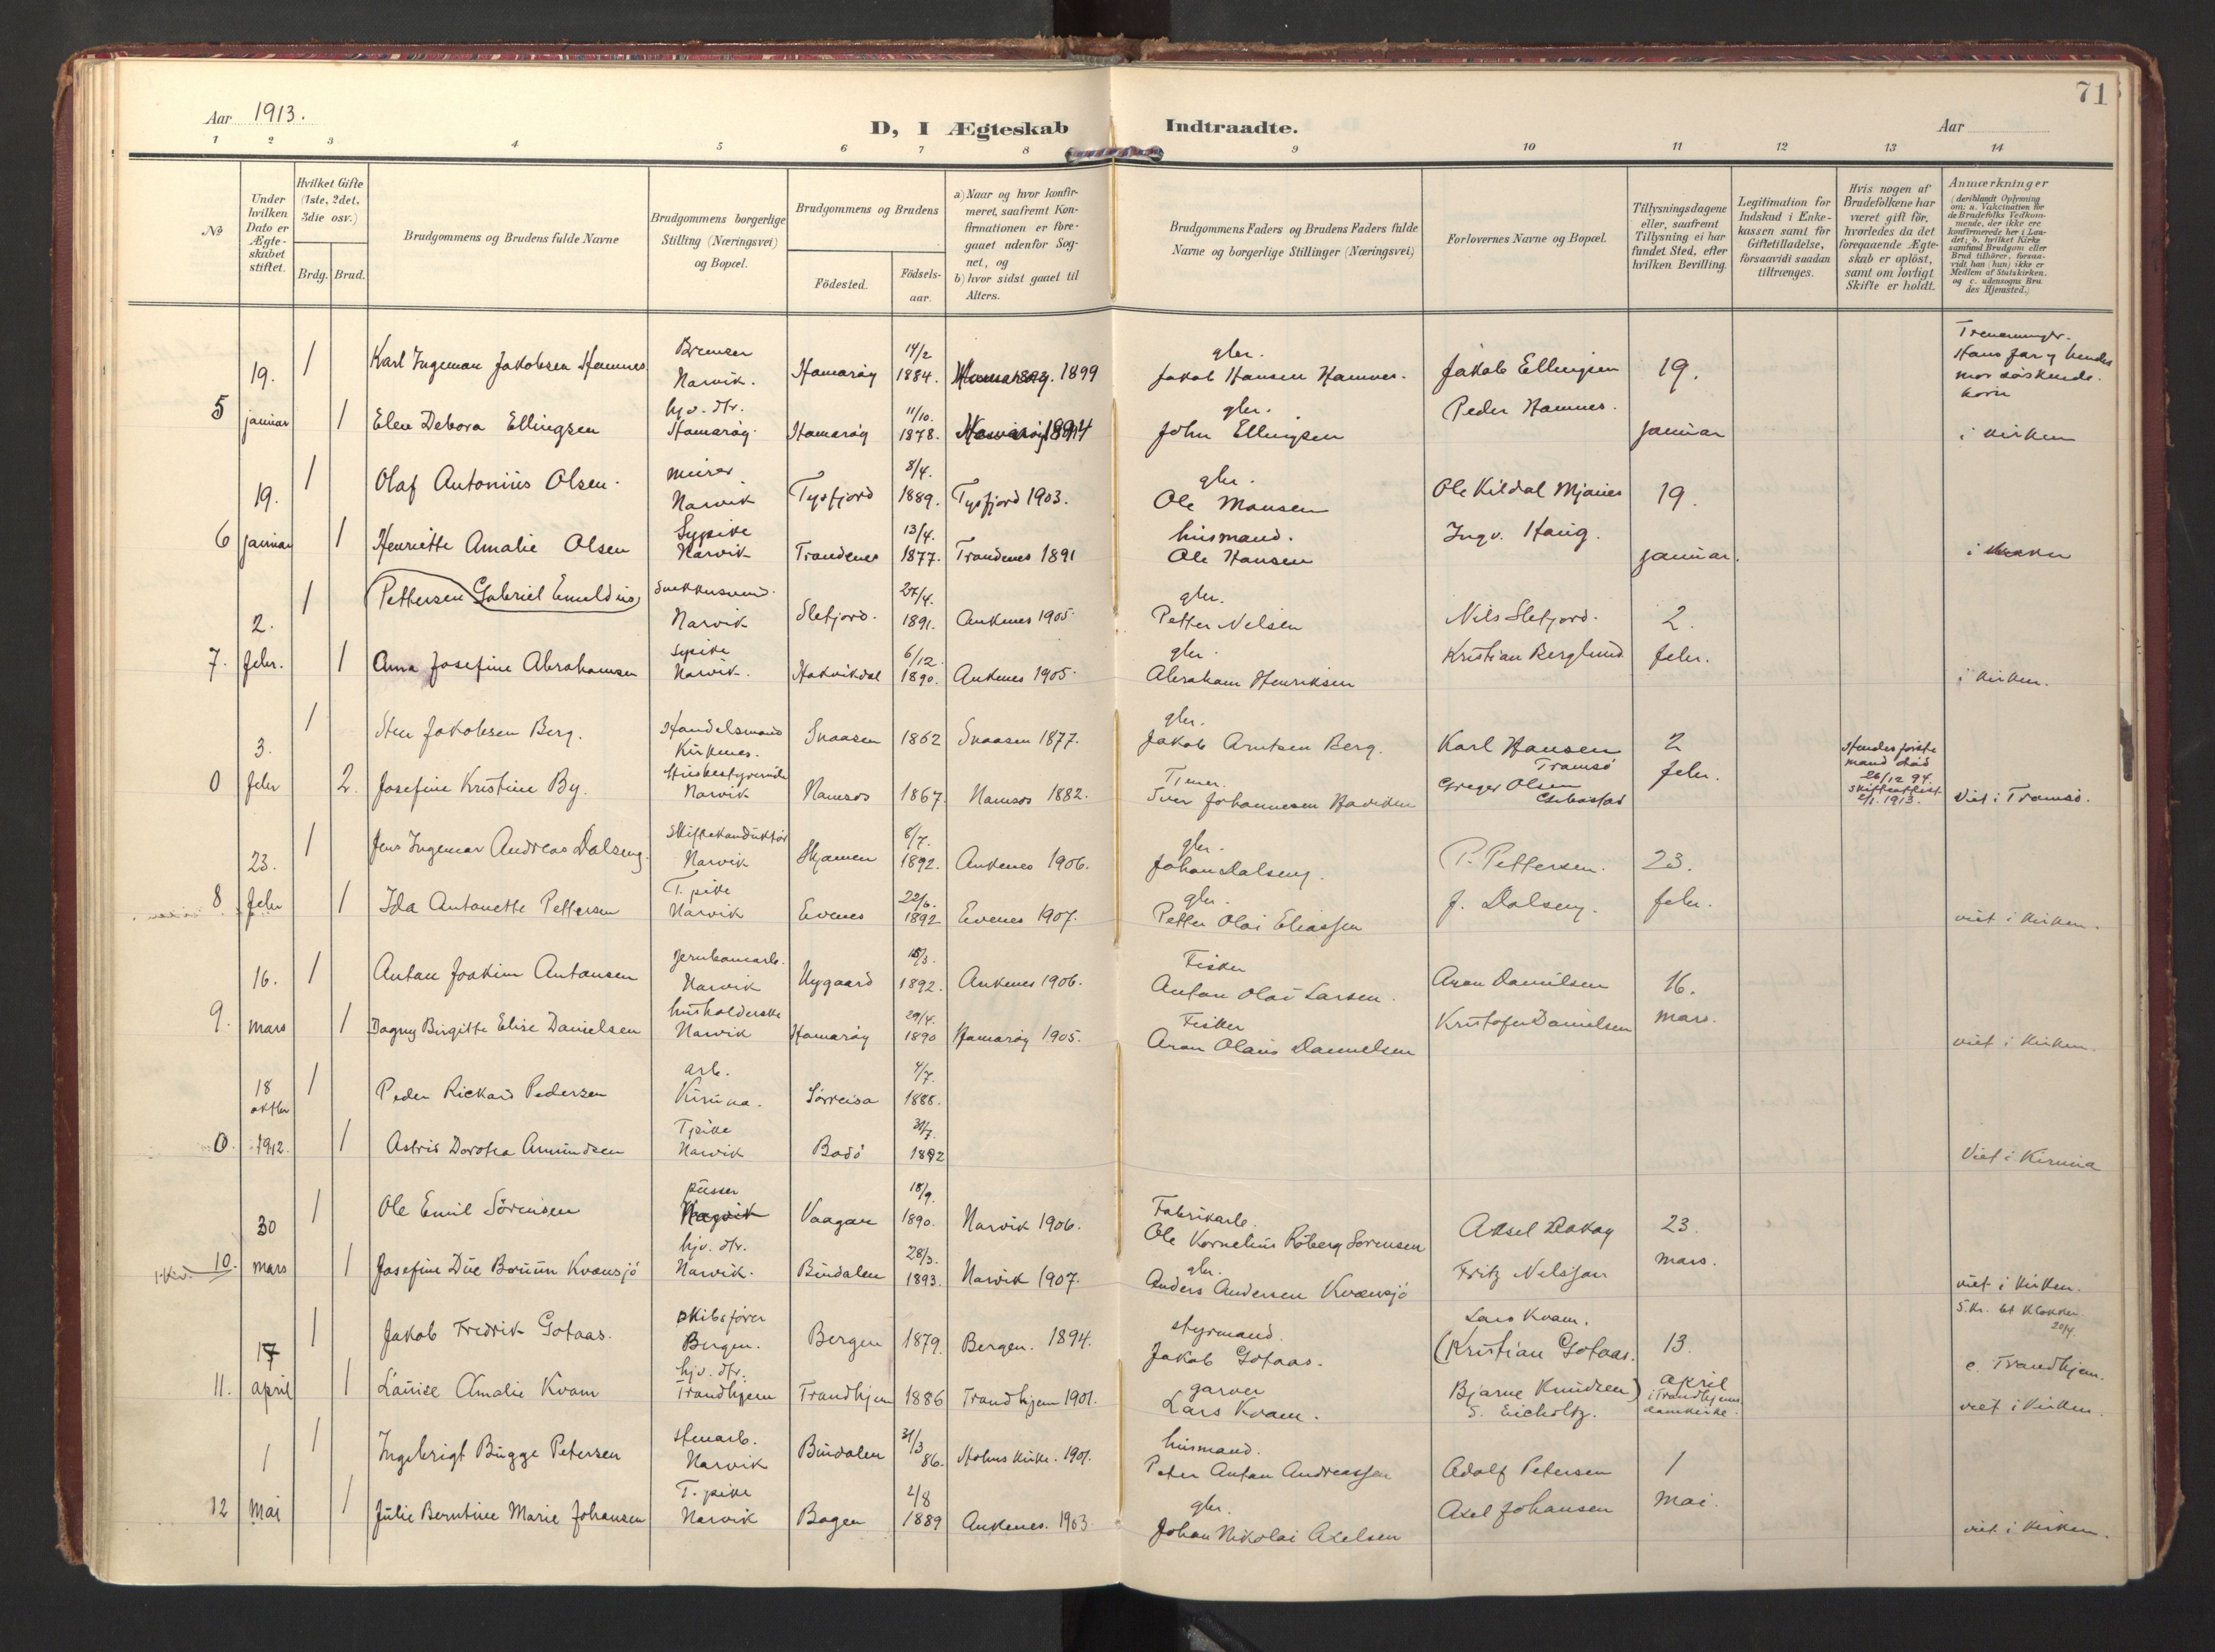 71
Aar 1913.
D, I Ægteskab Indtraadte.
Aar
1 2 3 4 5 6 7 8 9 10 11 12 13 14
No
Under hvilken Dato er Ægte-skabet stiftet.
Hvilket Gifte (1ste, 2det, 3die osv.)
Brdg. Brud.
Brudgommens og Brudens fulde Navne
Brudgommens borgerlige Stilling (Næringsvei) og Bopæl.
Brudgommens og Brudens
Födested.
Födsels-aar.
a) Naar og hvor konfir-meret, saafremt Kon-firmationen er fore-gaaet udenfor Sog-net, og
b) hvor sidst gaaet til Alters.
Brudgommens Faders og Brudens Faders fulde Navne og borgerlige Stillinger (Næringsvei)
Forlovernes Navne og Bopæl.
Tillysningsdagene eller, saafremt Tillysning ei har fundet Sted, efter hvilken Bevilling.
Legitimation for Indskud i Enke-kassen samt for Giftetilladelse, forsaavidt saadan tiltrænges.
Hvis nogen af Brudefolkene har været gift för, hvorledes da det foregaaende Ægte-skab er oplöst, samt om lovligt Skifte er holdt.
Anmærkninger
(deriblandt Oplysning om: a. Vaksination for de Brudefolks Vedkom-mende, der ikke ere konfirmerede her i Lan-det; b. hvilket Kirke samfund Brudgom eller Brud tilhörer, forsaa-vidt han (hun) ikke er Medlem af Statskirken. og c. udensogns Bru des Hjemsted.)
5 19. januar
1 Karl Ingeman Jakobsen Hamnes Bremser Narvik. Hamaröy 14/2 1884. 1899 gbr. Jakob Hansen Hamnes. Jakob Ellingsen 19. Hans far og hendes mor söskende-börn
1 Elen Debora Ellingsen hjv. dtr. Hamaröy. Hamaröy 11/10. 1878. 1894 gbr. John Ellingsen Peder Hamnes. januar i kirken
6 19. januar
1 Olaf Antonius Olsen. murer Narvik Tysfjord 8/4. 1889. Tysfjord 1903. gbr. Ole Monsen Ole Kildal Mjanes 19.
1 Henriette Amalie Olsen Sypike Narvik Trondenes 13/4. 1877. Trondenes 1891 husmand. Ole Hansen Ingv. Haug. januar. i kirken
7. 2. febr.
1 Pettersen Gabriel Emuldius, Narvik Slefjord. 27/4. 1891. Ankenes 1905. gbr. Petter Nelsen Nils Slefjord. 2.
1 Anna Josefine Abrahamsen sypike Narvik. Hakvikdal 6/12. 1890. Ankenes 1905. gbr. Abraham Henriksen Kristian Berglund febr. i kirken.
0 3. febr
1 Sten Jakobsen Berg. Handelsmand Kirkenes. Snaasen 1862 Snaasen 1877. gbr. Jakob Arntsen Berg. Karl Hansen Tromsö 2
2. Josefine Kristine By. Husbestyrerinde Narvik Namsos 1867. Namsos 1882. Johannesen Greger Olsen febr. Hendes förste mand död 26/12 94. skifteattest 2/1. 1913. Viet i Tromsö.
8 23. febr
1 Jens Ingemar Andreas Dalseng. Skiftekonduktör Narvik Skjomen 8/7. 1892. Ankenes 1906. gbr. Johan Dalseng. P. Pettersen. 23.
1 Ida Antonette Pettersen T. pike Narvik Evenes 22/6. 1892 Evenes 1907. gbr. Petter Olai Eliassen J. Dalseng. febr. viet i kirken.
9. 16. mars
1 Anton Joakim Antonsen Jernbanearb. Narvik Nygaard 15/3. 1892. Ankenes 1906. Fisker Anton Olai Larsen. Aron Danielsen 16.
1 Dagny Birgitte Elise Danielsen husholderske Narvik Hamaröy 29/4. 1890 Hamaröy 1905. Fisker Aron Olaus Danielsen Kristofer Danielsen mars. viet i kirken.
0. 18 oktbr 1912.
1 Peder Rickard Pedersen arb. Kiruna. Sörreisa 4/7. 1888.
1 Astrid Dorotea Amundsen T pike Narvik Bodö 31/7. 1892 Viet i Kiruna
10. 30 mars
1 Ole Emil Sörensen pusser Narvik Vaagan 18/9. 1890. Narvik 1906. Fabrikarb. Ole Kornelius Röberg Sörensen Aksel Dakay 23.
1 Josefine Due Bruun Kvænsjö hjv. dtr. Narvik. Bindalen 28/3. 1893. Narvik 1907. gbr. Anders Andersen Kvænsjö Fritz Nelsson mars. viet i kirken.
11. 17 april
1 Jakob Fredrik Gotaas. skibsförer Bergen. Bergen 1879. Bergen. 1894. styrmand. Jakob Gotaas. Lars Kvam. (Kristian Gotaas. 13. 5 Kr. bet Klokker 20/4.
1 Louise Amalie Kvam hjv. dtr. Trondhjem Trondhjem 1886 Trondhjem 1901. garver Lars Kvam. Bjarne Knudzen) S. Eicholtz. april i Trondhjems domkirke. c. Trondhjem. viet i kirken.
12 1 mai
1 Ingebrigt Bugge Petersen stenarb. Narvik Bindalen 31/3 86. Holms kirke. 1901. husmand. Peter Antan Andreassen Adolf Petersen 1
1 Julie Berntine Marie Johansen T. pike Narvik Bogen 2/8 1889 Ankenes. 1903. gbr. Johan Nikolai Axelsen Axel Johansen mai. viet i kirken.